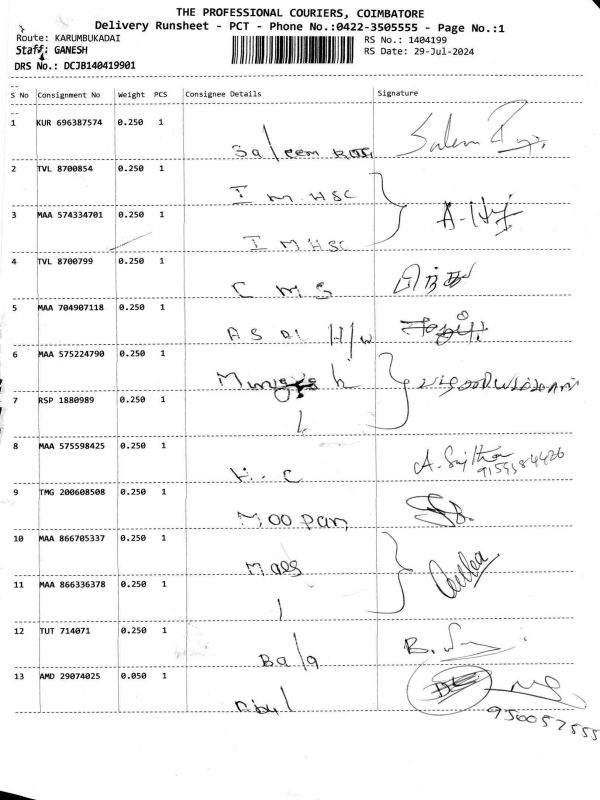 THE PROFESSIONAL COURIERS, COIMBATORE
Delivery Runsheet - PCT - Phone No.:0422-3505555 - Page No.:1
Route: KARUMBUKADAI
RS No.: 1404199
Staff: GANESH
RS Date: 29-Jul-2024
DRS No.: DCJB140419901
S No Consignment No Weight PCS Consignee Details Signature
1 KUR 696387574 0.250 1 Saleem
2 TVL 8700854 0.250 1 I M HSC
3 MAA 574334701 0.250 1 I M HSC
4 TVL 8700799 0.250 1 C M S
5 MAA 704907118 0.250 1 H/w
6 MAA 575224790 0.250 1
7 RSP 1880989 0.250 1
8 MAA 575598425 0.250 1 A. Sujitha
9159384426
9 TMG 200608508 0.250 1 Moopan
10 MAA 866705337 0.250 1
11 MAA 866336378 0.250 1
12 TUT 714071 0.250 1 Bala
13 AMD 29074025 0.050 1
950057555